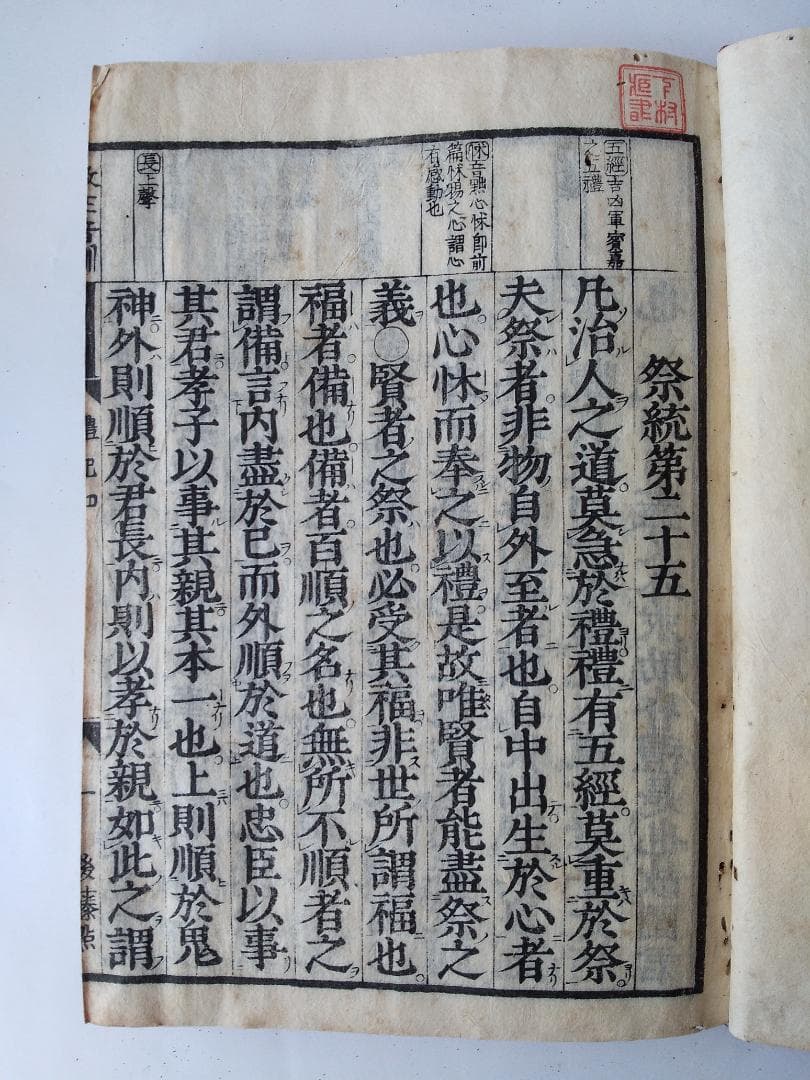 五經吉凶軍賓嘉
之五禮
怵音黜心怵即前
篇怵惕之心謂心
有感動也
長上聲
祭統第二十五
凡治人之道莫急於禮禮有五經莫重於祭
夫祭者非物自外至者也自中出生於心者
也心怵而奉之以禮是故唯賢者能盡祭之
義○賢者之祭也必受其福非世所謂福也
福者備也備者百順之名也無所不順者之
謂備言內盡於己而外順於道也忠臣以事
其君孝子以事其親其本一也上則順於鬼
神外則順於君長內則以孝於親如此之謂
禮記四
一
後藤点